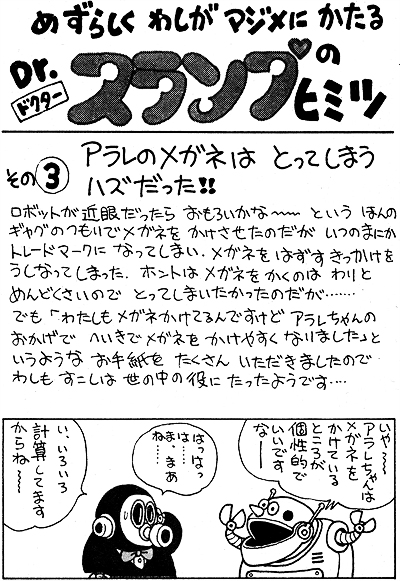 めずらしく わしが マジメに かたる
Dr.
ドクター
スランプ
の
ヒミツ
その③
アラレのメガネは とってしまう
ハズだった!!
ロボットが 近眼だったら おもろいかな〜〜 という ほんの
ギャグのつもりでメガネを かけさせたのだが いつのまにか
トレードマークに なってしまい、メガネを はずす きっかけを
うしなってしまった. ホントは メガネを かくのは わりと
めんどくさいので とってしまいたかったのだが……
でも「わたしもメガネかけてるんですけど アラレちゃんの
おかげで へいきでメガネを かけやすく なりました」と
いうような お手紙を たくさん いただきましたので
わしも すこしは 世の中の 役に たったようです‥‥
いや〜〜
アラレちゃんは
メガネを
かけている
ところが
個性的で
いいです
なー
はっはっ
は……
ま、まあ
ね……
い、いろいろ
計算してます
からね〜〜